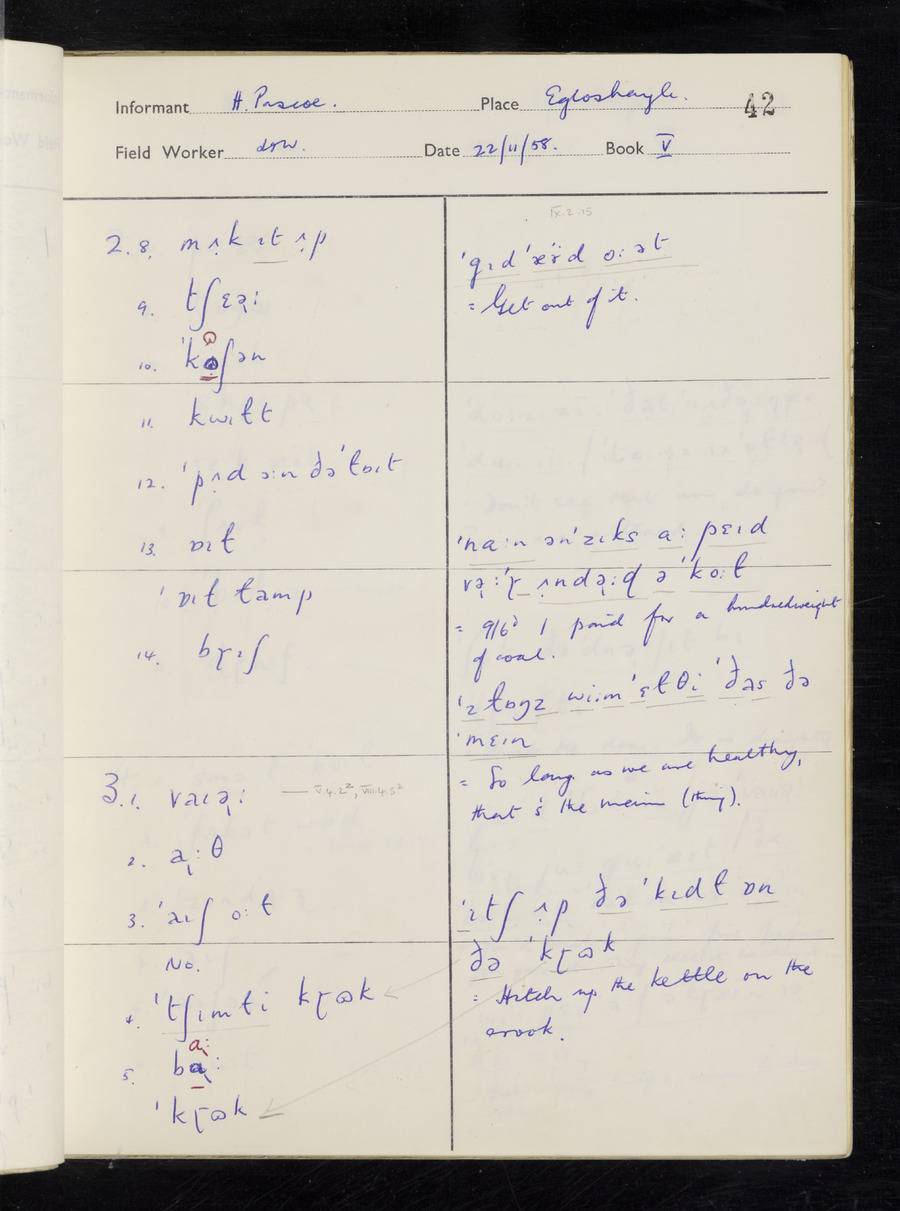 Informant H. Pascoe. Place Egloshayle. 42
Field Worker DRW. Date 22/11/58. Book V
2. 8. mʌkɪt ʌp
9. tʃɛə̢:
10. 'kʊʃən
11. kwɪɫt
12. 'pʌd ɔ:n ðə 'ɫɒɪt
13. ɒɪɫ
'ɒɪɫ ɫamp
14. bɽɪʃ
3. 1. vaɪə̢: — V.4.2², VIII.4.5²
2. a̢:θ
3. 'aɪʃ o:ɫ
No.
4. 'tʃɪmɫi kɽɷk
a̢:
5. ba̢:
'kɽɷk
IX.2.15
'gɪd 'æʏd o:ət
= Get out of it.
'na:n ən'zɪks a: pɛɪd
və̢:'ɽ ʌndə̢:d ə 'ko:ɫ
= 9/6ᵈ I paid for a hundredweight
of coal.
'z ɫɒŋz wi:m 'ɛɫθi 'ðas ðə
'mɛɪn
= So long as we are healthy,
that's the main (thing).
'ɪtʃ ʌp ðə 'kɪdɫ ɒn
ðə 'kɽɷk
= Hitch up the kettle on the
crook.